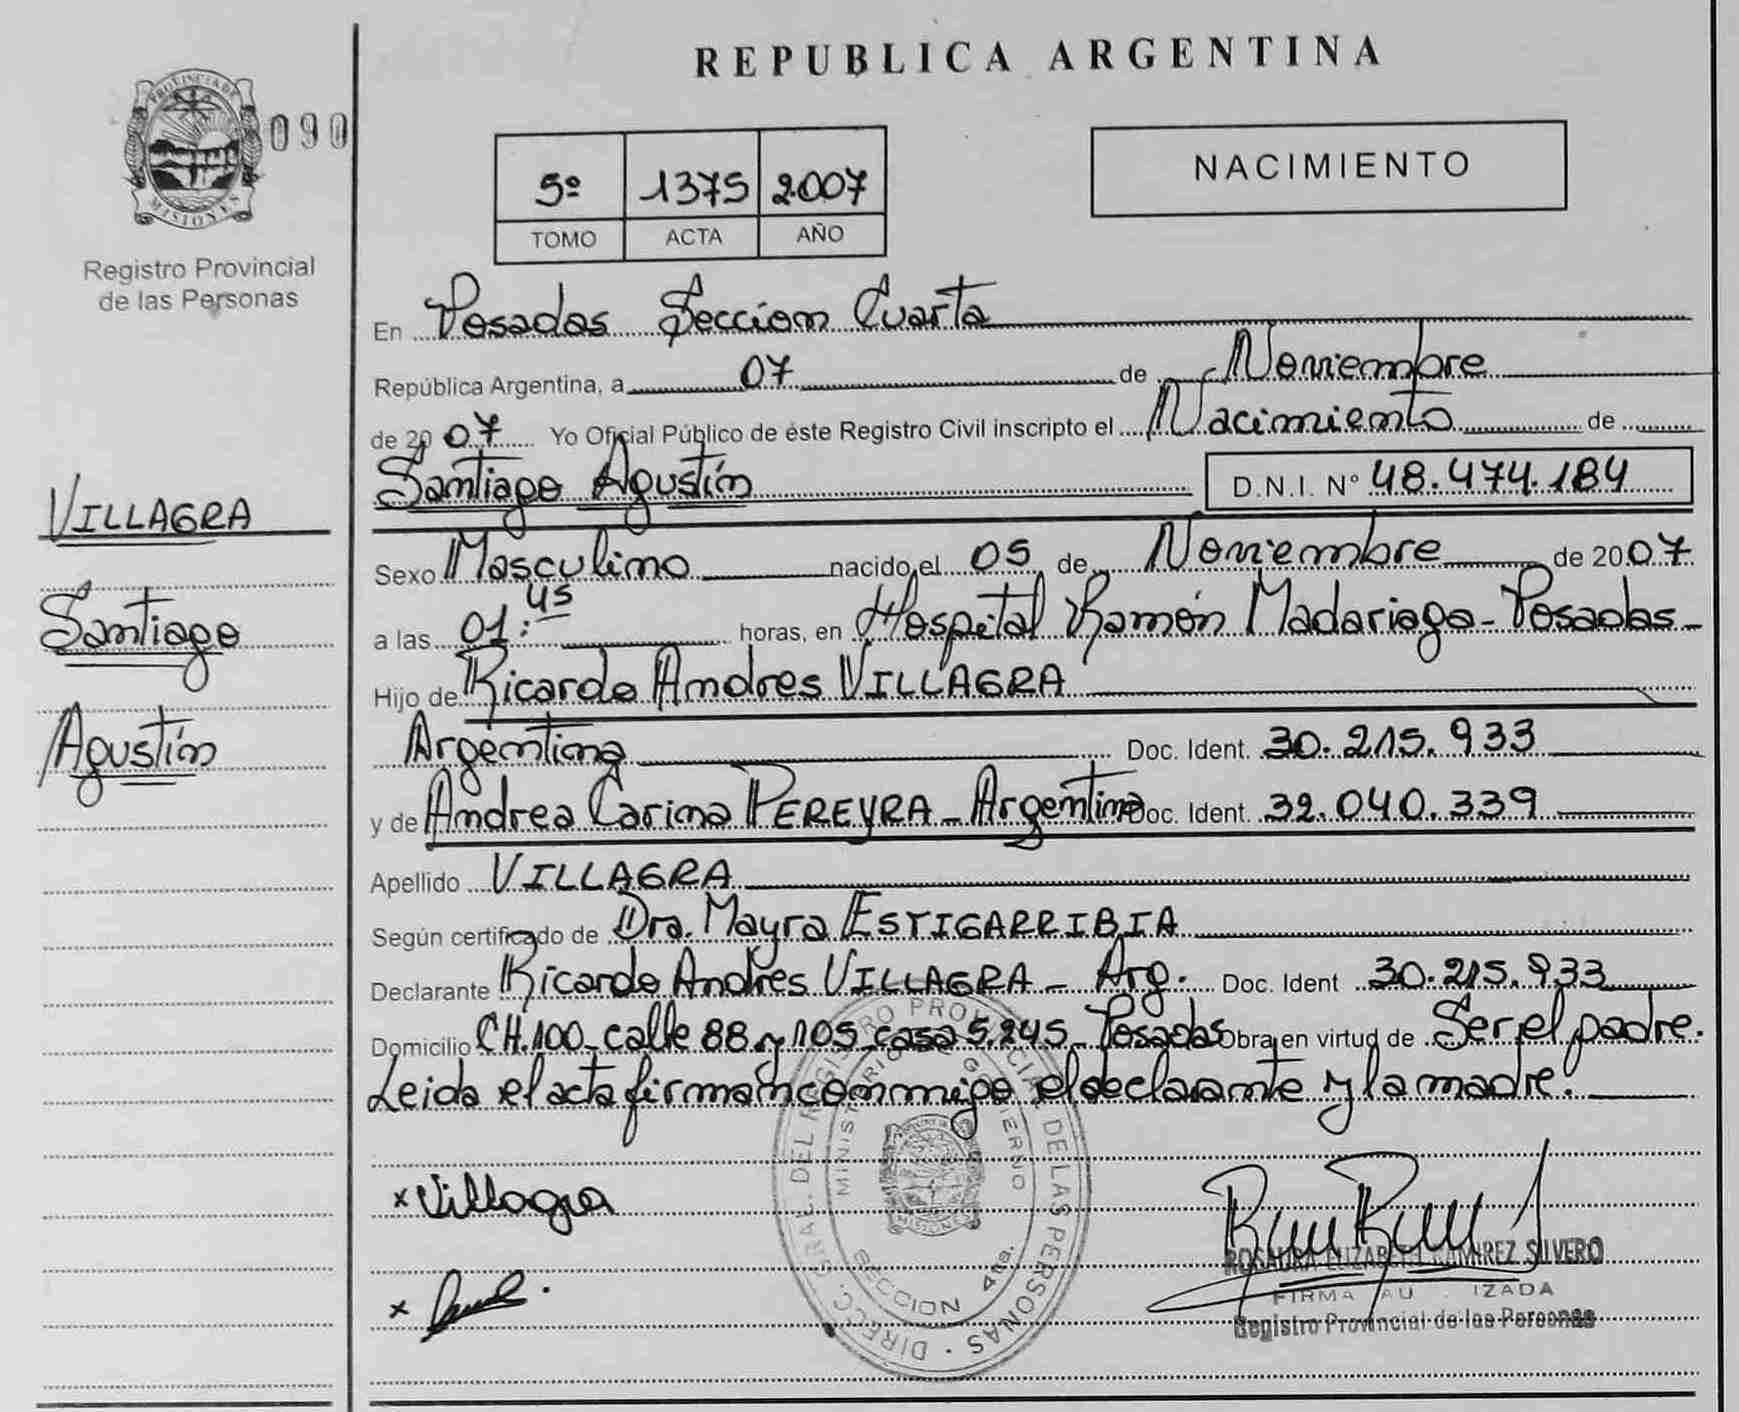 REPUBLICA ARGENTINA
PROVINCIA DE
MISIONES
090
Registro Provincial
de las Personas
5º 1375 2007
TOMO ACTA AÑO
NACIMIENTO
En Posadas Seccion Cuarta
República Argentina, a 07 de Noviembre
de 2007 Yo Oficial Público de éste Registro Civil inscripto el Nacimiento de
Santiago Agustín D.N.I. Nº 48.474.184
VILLAGRA
Santiago
Agustín
Sexo Masculino nacido el 05 de Noviembre de 2007
a las 01:45 horas, en Hospital Ramón Madariaga - Posadas -
Hijo de Ricardo Andres VILLAGRA
Argentina Doc. Ident. 30.215.933
y de Andrea Carina PEREYRA - Argentina Doc. Ident. 32.040.339
Apellido VILLAGRA
Según certificado de Dra. Mayra ESTIGARRIBIA
Declarante Ricardo Andres VILLAGRA - Arg. Doc. Ident 30.215.933
Domicilio CH.100 - calle 88 y 105 casa 5.245 - Posadas Obra en virtud de Ser el padre.
Leida el acta firman conmigo el declarante y la madre.
x Villagra
x
DIRECC. GRAL. DEL REGISTRO PROVINCIAL DE LAS PERSONAS
MINISTERIO DE GOBIERNO
SECCION 4ta.
MISIONES
ROSAURA ELIZABETH RAMIREZ SILVERO
FIRMA AU IZADA
Registro Provincial de las Personas